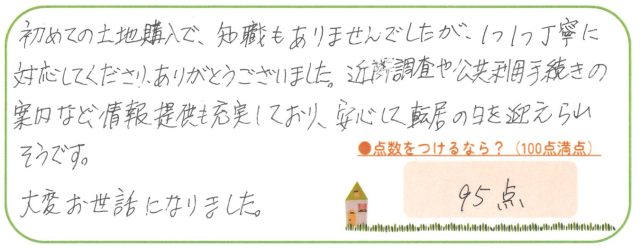 初めての土地購入で、知職もありませんでしたが、1つ1つ丁寧に
対応してくださり、ありがとうございました。近隣調査や公共利用手続きの
案内など情報提供も充実しており、安心して転居の日を迎えられ
そうです。
大変お世話になりました。
●点数をつけるなら？（100点満点）
95点